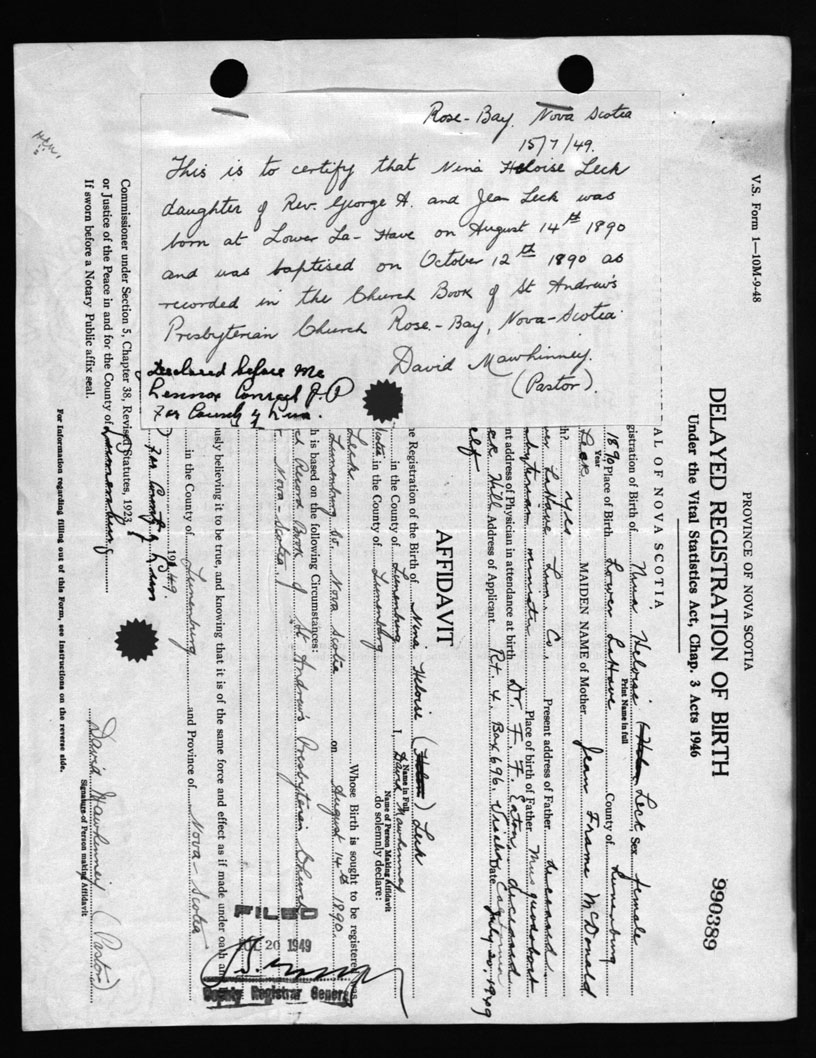 Rose-Bay. Nova Scotia
15/7/49.
This is to certify that Nina Heloise Leck
daughter of Rev. George A. and Jean Leck was
born at Lower La-Have on August 14th 1890
and was baptised on October 12th 1890 as
recorded in the Church Book of St Andrew's
Presbyterian Church Rose-Bay, Nova-Scotia.
David Mawhinney.
(Pastor).
Declared before me
Lennox Conrad J.P
For County of Lun.
V.S. Form 1—10M-9-48
PROVINCE OF NOVA SCOTIA
DELAYED REGISTRATION OF BIRTH
Under the Vital Statistics Act, Chap. 3 Acts 1946
990389
AL OF NOVA SCOTIA
gistration of Birth of Nina Heloise Leck Sex female
Print Name in full
1890 Place of Birth Lower LaHave County of Lunenburg
Year
Leck MAIDEN NAME of Mother Jean Frame McDonald
h? yes
LaHave Lun. Co. Present address of Father deceased
byterian minister Place of birth of Father Musquodoboit
nt address of Physician in attendance at birth Dr. F. F. Eaton, deceased
Address of Applicant Rt. 4, Box 696, California
elf Date July 20, 1949
AFFIDAVIT
he Registration of the Birth of Nina Heloise ( ) Leck
Name in Full
in the County of Lunenburg I, David Mawhinney
Name of Person Making Affidavit
Scotia in the County of Lunenburg do solemnly declare:
Leck Whose Birth is sought to be registered was
Lunenburg Co. Nova Scotia on August 14th 1890
h is based on the following Circumstances:
Record Book of St Andrew's Presbyterian Church
Nova-Scotia.
usly believing it to be true, and knowing that it is of the same force and effect as if made under oath an
in the County of Lunenburg and Province of Nova-Scotia
1949.
For County of Lun
David Mawhinney (Pastor)
Signature of Person making Affidavit
Commissioner under Section 5, Chapter 38, Revised Statutes, 1923,
or Justice of the Peace in and for the County of Lunenburg
If sworn before a Notary Public affix seal.
For Information regarding filling out of this Form, see instructions on the reverse side.
FILED
JUL 20 1949
Deputy Registrar General